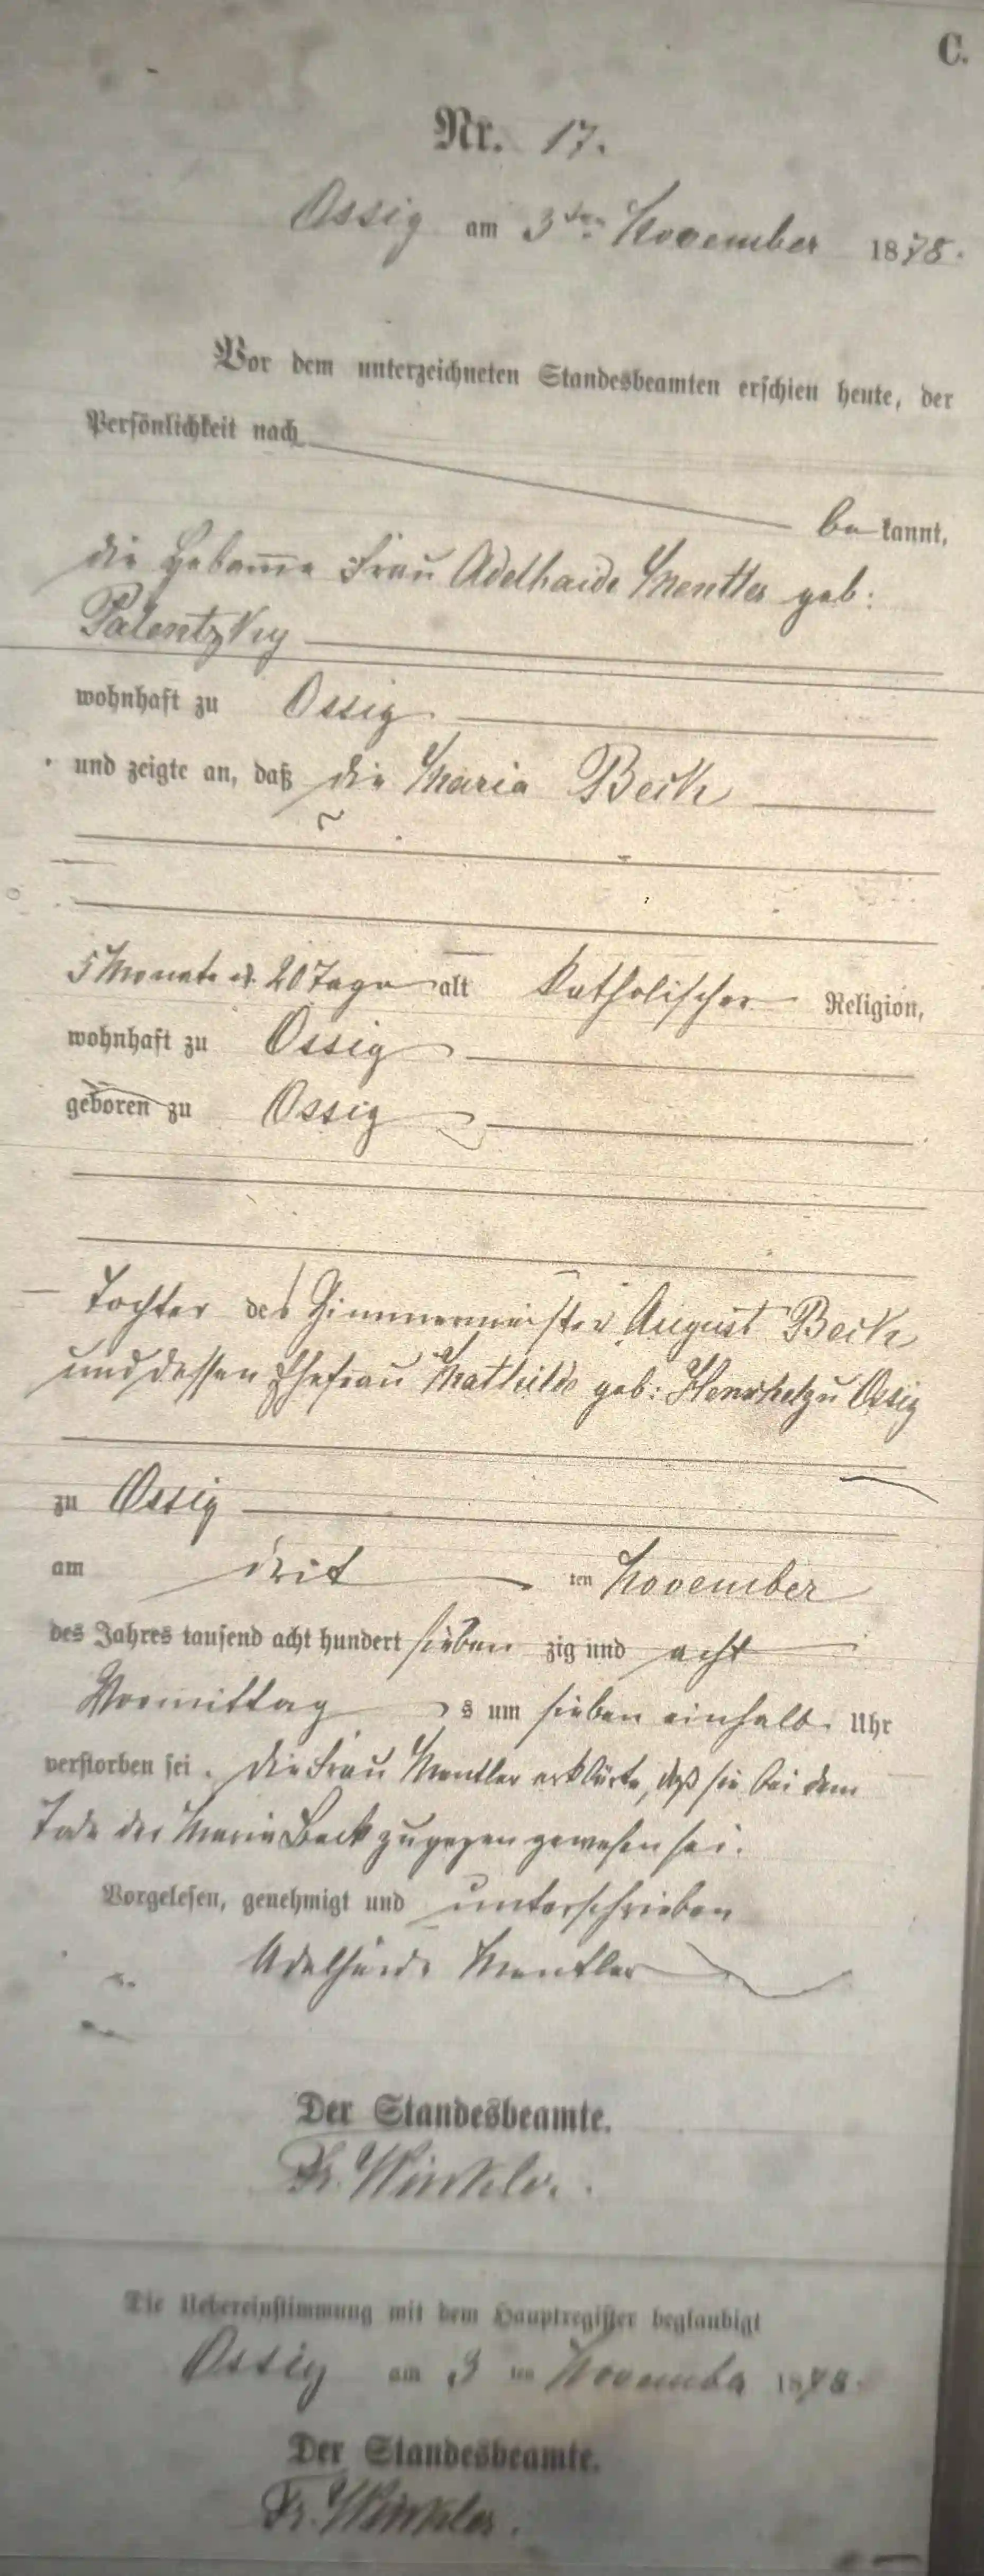 C.
Nr. 17.
Ossig am 3ten November 1878.
Vor dem unterzeichneten Standesbeamten erschien heute, der
Persönlichkeit nach
be kannt,
die Hebamme Frau Adelhaide Mentler geb:
Palentzky
wohnhaft zu Ossig
und zeigte an, daß die Maria Beck
5 Monate u. 20 Tage alt katholischer Religion,
wohnhaft zu Ossig
geboren zu Ossig
Tochter des Zimmermeister August Beck
und dessen Ehefrau Mathilde geb: Henschel zu Ossig
zu Ossig
am drit ten November
des Jahres tausend acht hundert sieben zig und acht
Vormittag s um sieben einhalb Uhr
verstorben sei. Die Frau Mentler erklärte, daß sie bei dem
Tode der Maria Beck zugegen gewesen sei.
Vorgelesen, genehmigt und unterschrieben
Adelheide Mentler
Der Standesbeamte.
Fr. Winkler.
Die Uebereinstimmung mit dem Hauptregister beglaubigt
Ossig am 3 ten November 1878.
Der Standesbeamte.
Fr. Winkler.